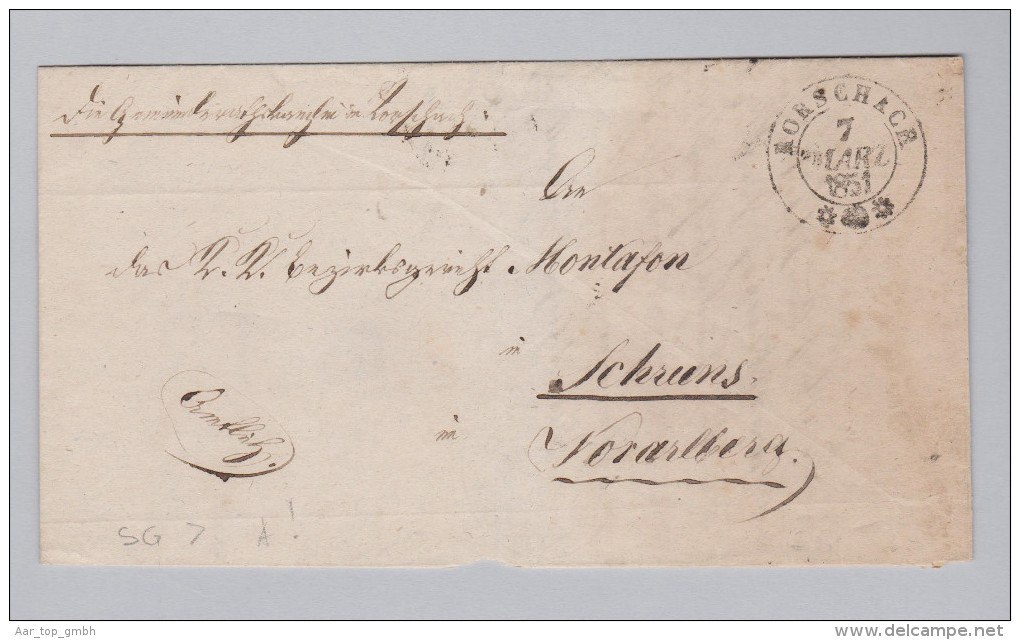 Die Gemeinderathskanzlei in Rorschach:
RORSCHACH
7
MÄRZ
1851
An
das K. K. Bezirksgericht Montafon
in
Schruns.
im
Vorarlberg.
Amtlich.
SG 7 A!
Aar_top_gmbh
www.delcampe.net